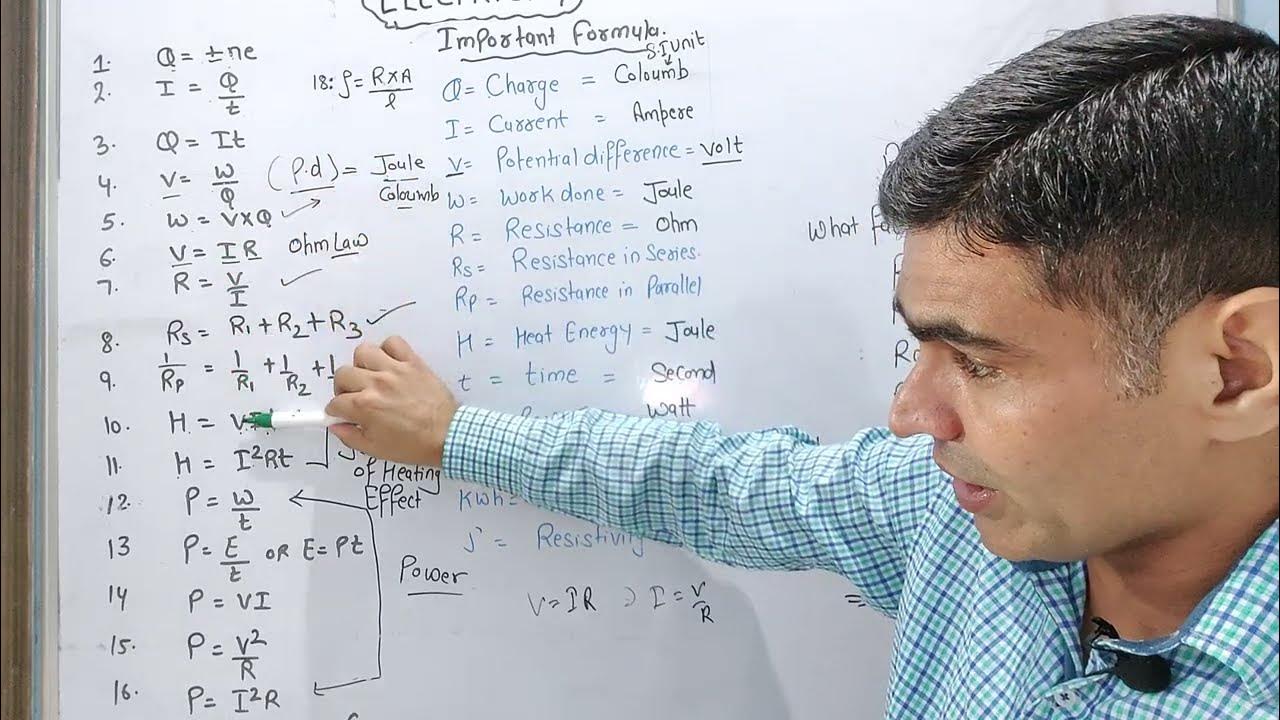 ELECTRICITY
Important Formula.
S.I Unit
1. Q = ±ne
2. I = Q/t
18: ρ = R×A/l
3. Q = It
4. V = W/Q (P.d) = Joule/Coloumb
5. W = V×Q
6. V = IR Ohm Law
7. R = V/I
8. Rs = R1 + R2 + R3
9. 1/Rp = 1/R1 + 1/R2 + 1
10. H = V
11. H = I²Rt
of Heating
Effect
12. P = W/t
13 P = E/t OR E = Pt
14 P = VI
15. P = V²/R
16. P = I²R
Power
Q = Charge = Coloumb
I = Current = Ampere
V = Potential difference = volt
W = Work done = Joule
R = Resistance = Ohm
Rs = Resistance in Series.
Rp = Resistance in Parallel
H = Heat Energy = Joule
t = time = Second
Watt
Kwh =
ρ = Resistivity
V = IR ⊃ I = V/R
What
=